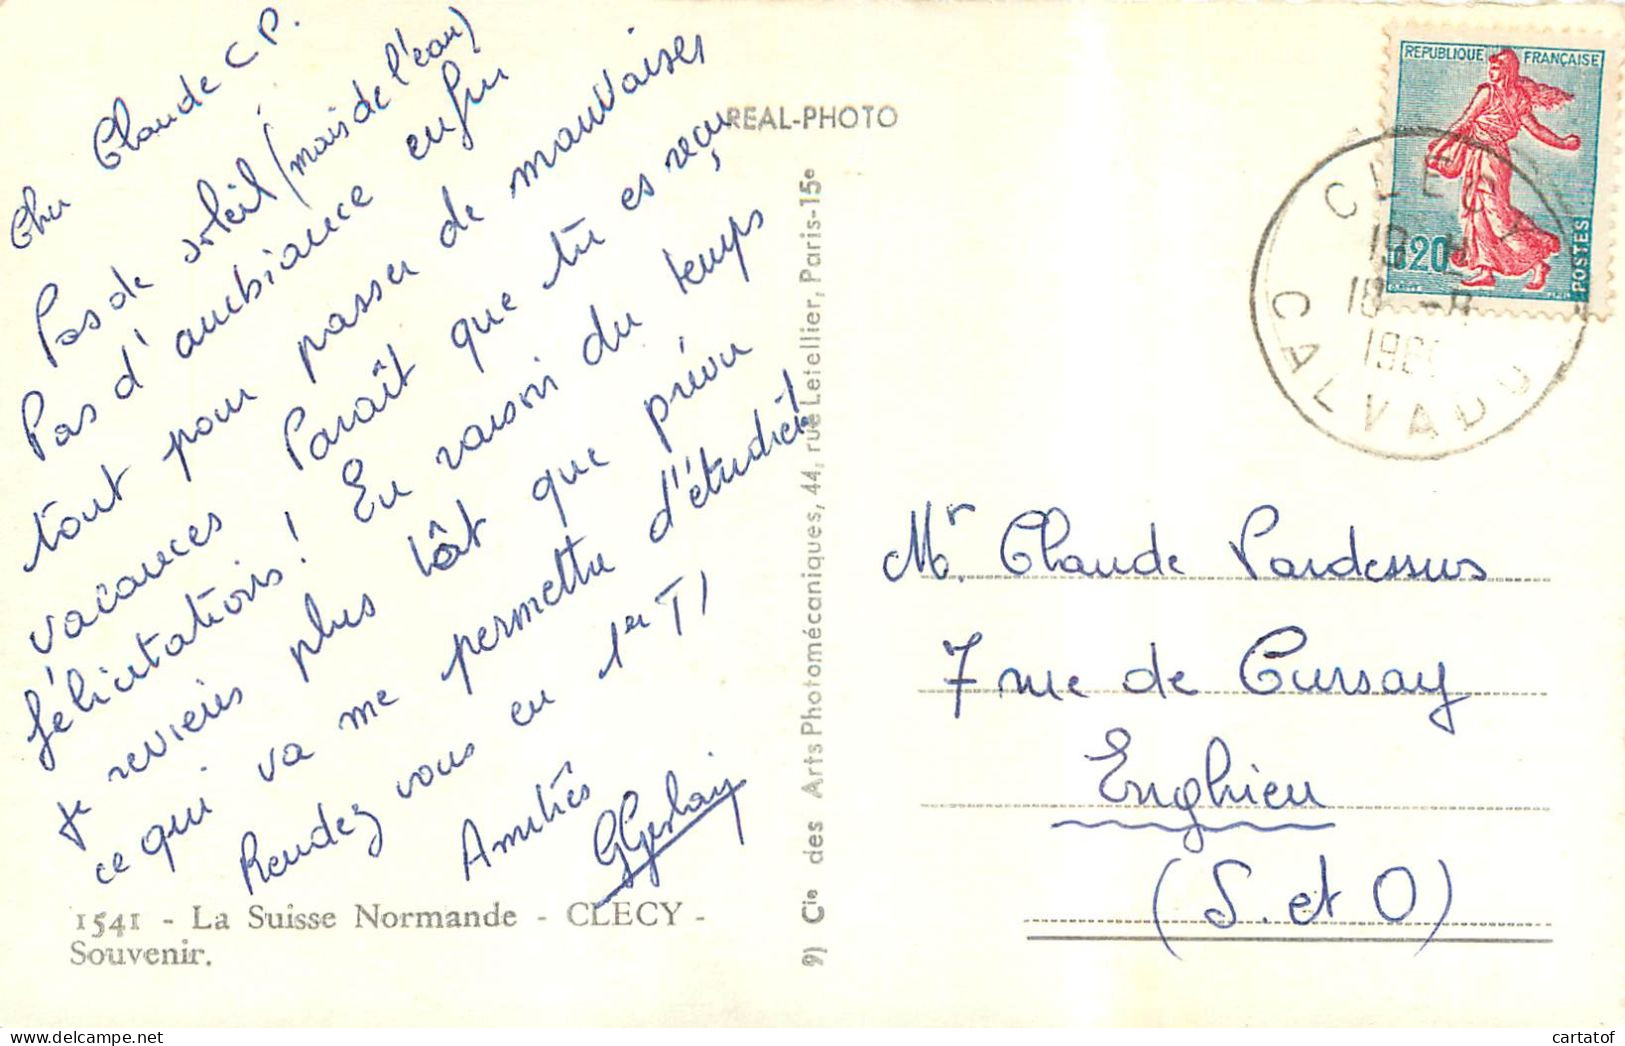 Cher Claude C P.
Pas de soleil (mais de l'eau)
Pas d'ambiance enfin
tout pour passer de mauvaises
vacances Paraît que tu es reçu
félicitations ! En raison du temps
je reviens plus tôt que prévu
ce qui va me permettre d'étudier !
Rendez vous en 1er T1
Amitiés
1541 - La Suisse Normande - CLECY -
Souvenir.
REAL-PHOTO
9) Cie des Arts Photomécaniques, 44, rue Letellier, Paris-15e
REPUBLIQUE FRANÇAISE
0,20
POSTES
CLECY
19 H
18 -8
CALVADOS
Mr. Claude Pardessus
7 rue de Cursay
Enghien
(S. et O)
cartatof